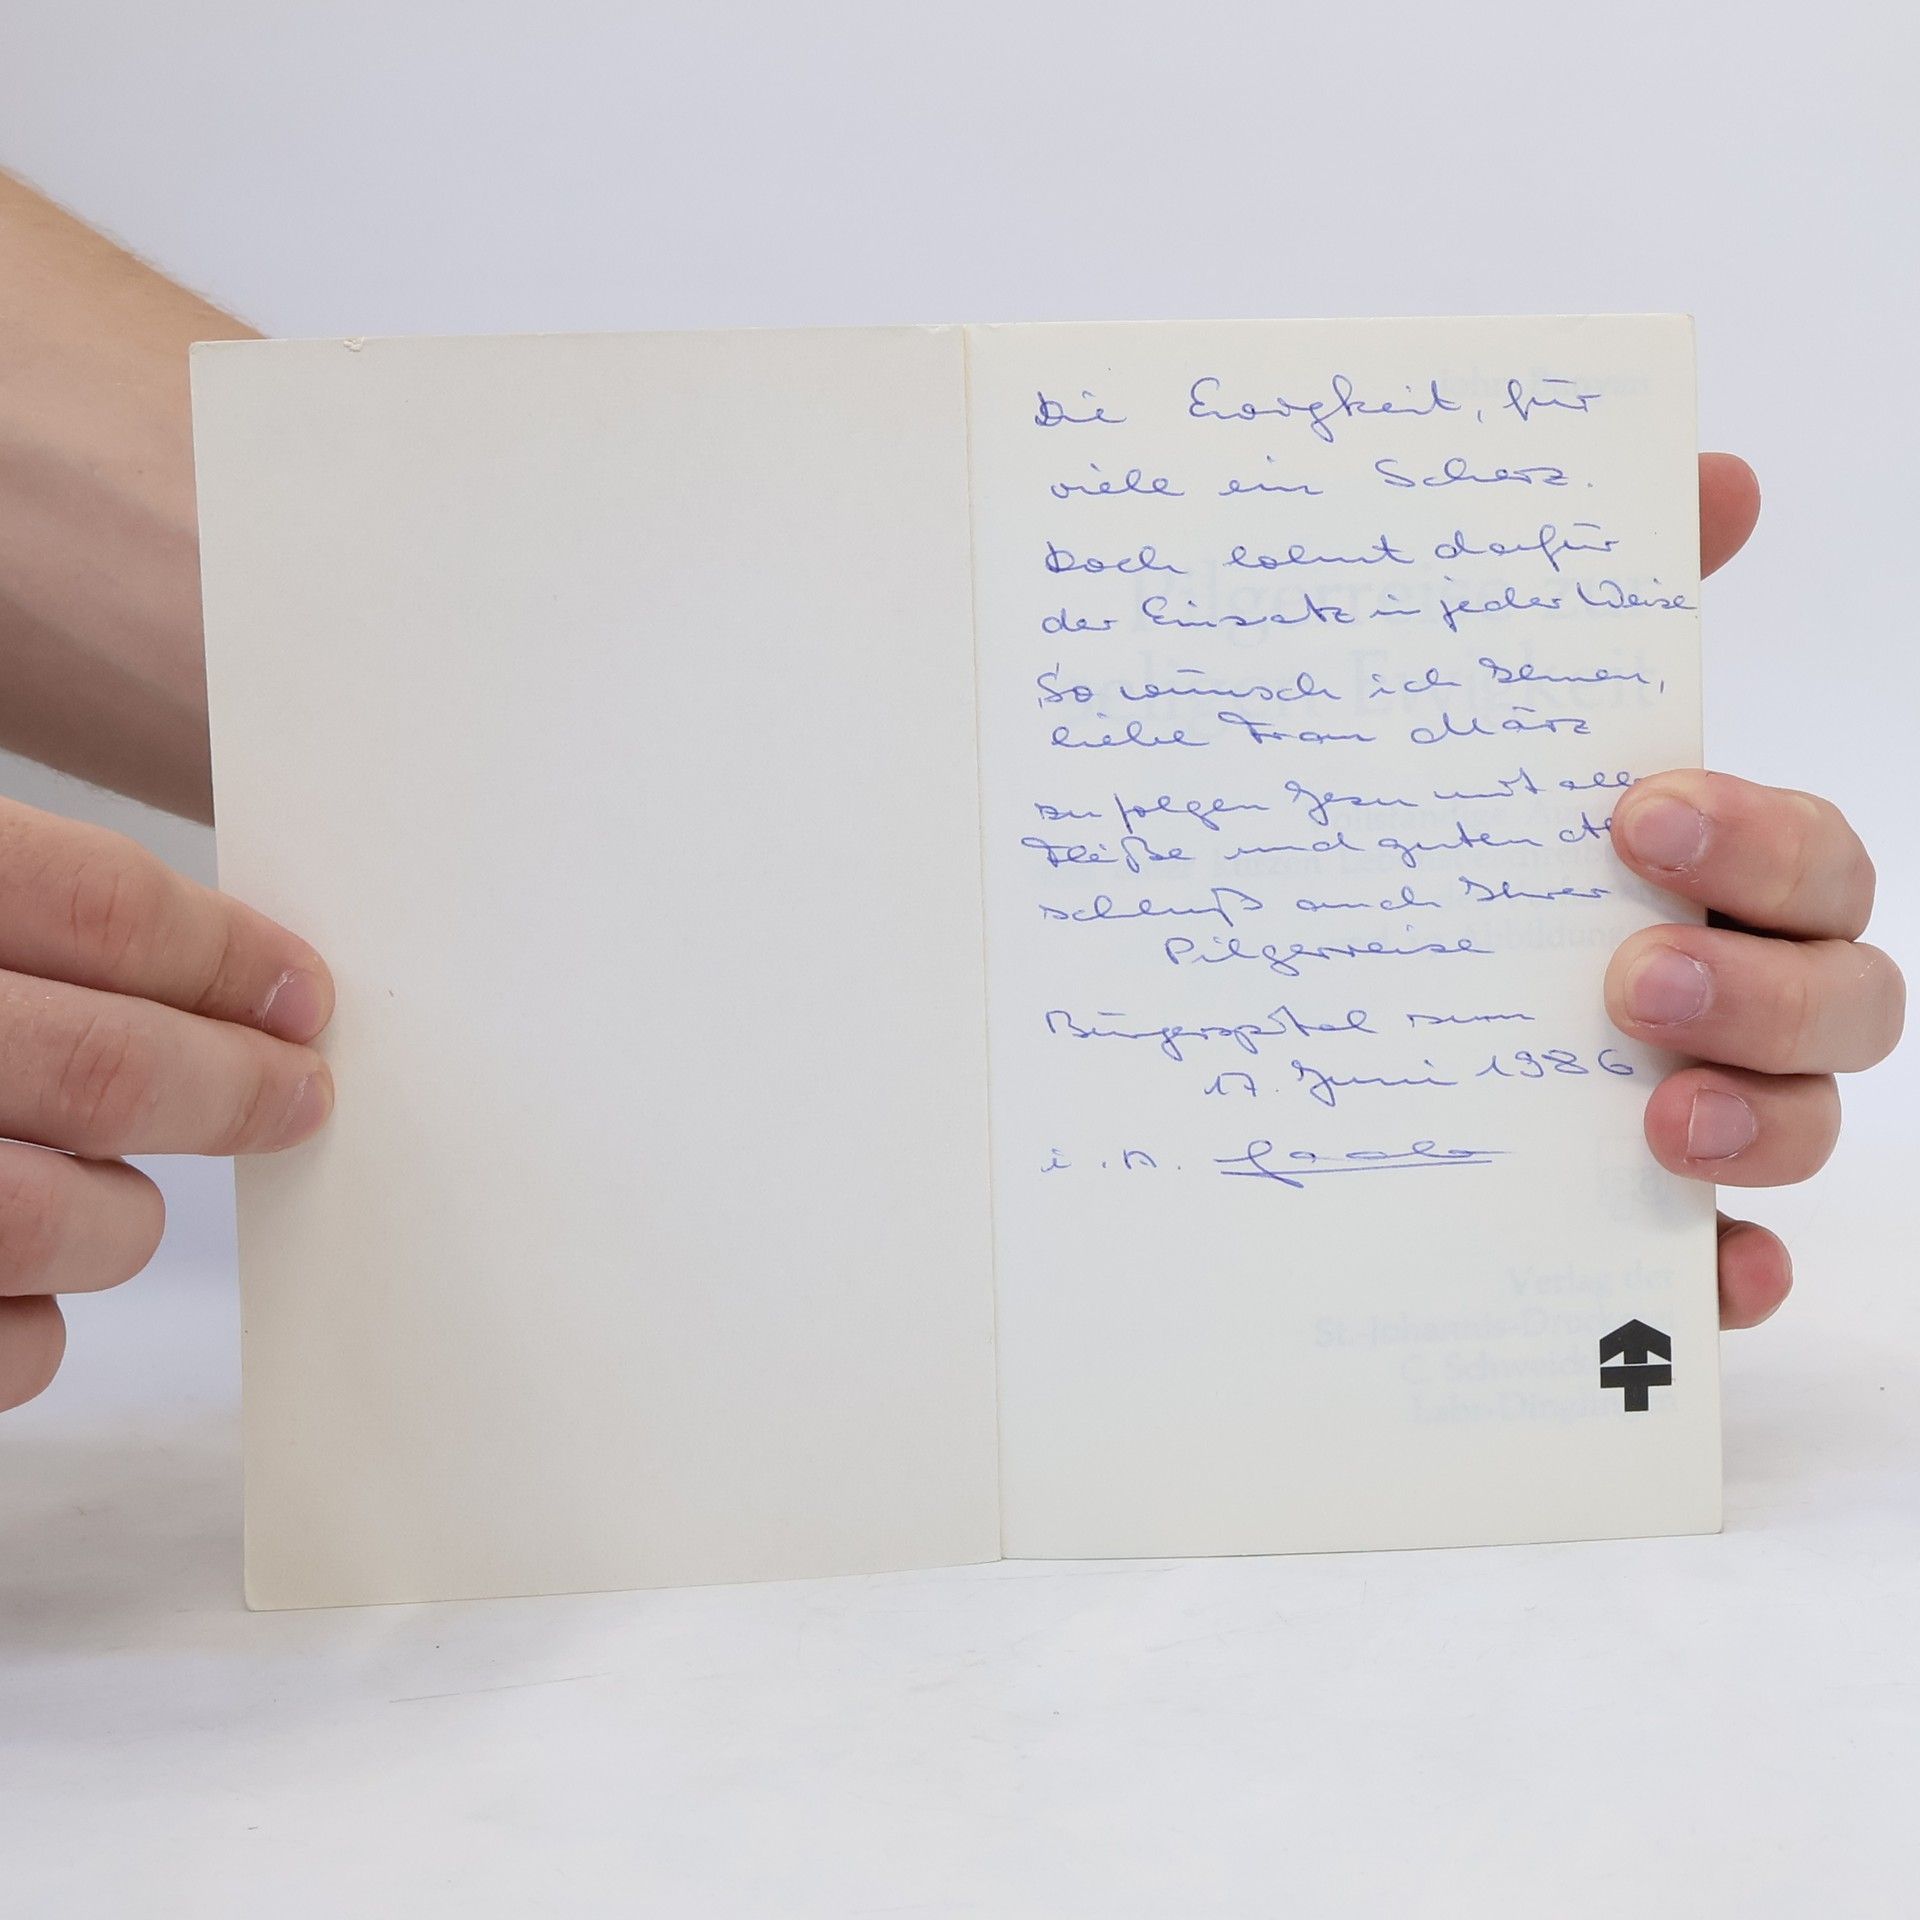 Die Ewigkeit, für
viele ein Scherz.
Doch lohnt dafür
der Einsatz in jeder Weise.
So wünsch ich Ihnen,
liebe Frau März
zu folgen Jesu mit
Fleiße und guten
schluß auch Ihrer
Pilgerreise
Bürgerspital zum
17. Juni 1986
i. A.
Pilgerreise zur
seligen Ewigkeit
Verlag der
St.-Johannis-Druckerei
C. Schweickhardt
Lahr-Dinglingen